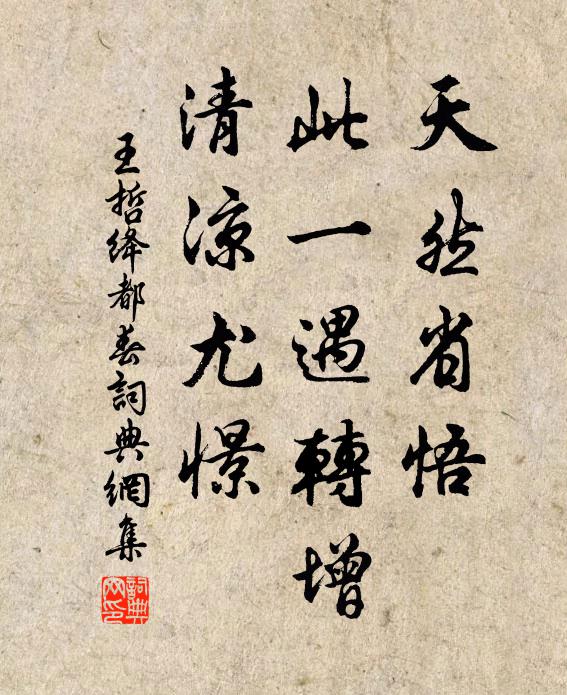 天然省悟
此一遇轉增
清凉尤憬
王哲绛都春詞典網集
詞典
网印